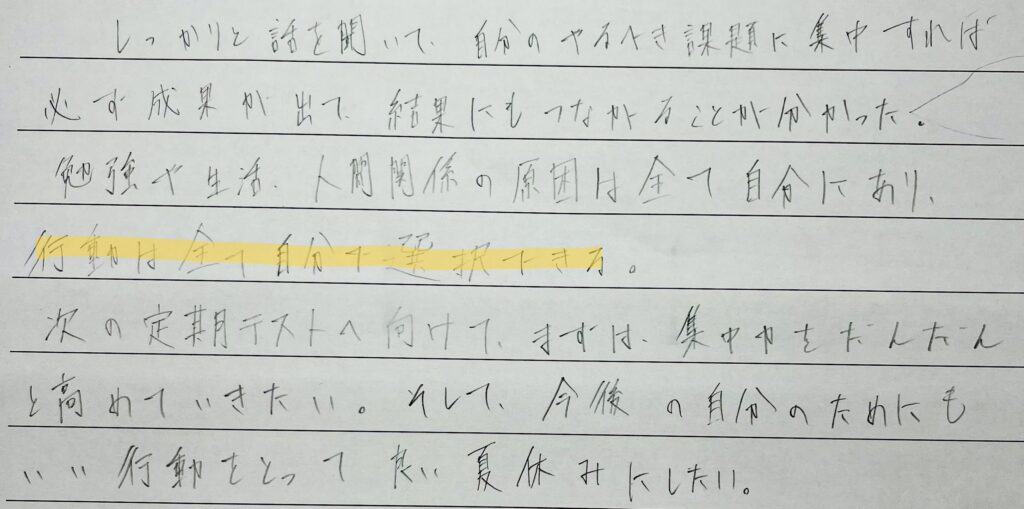 しっかりと話を聞いて、自分のやるべき課題に集中すれば
必ず成果が出て、結果にもつながることが分かった。
勉強や生活、人間関係の原因は全て自分にあり、
行動は全て自分で選択できる。
次の定期テストへ向けて、まずは、集中力をだんだん
と高めていきたい。そして、今後の自分のためにも
いい行動をとって良い夏休みにしたい。